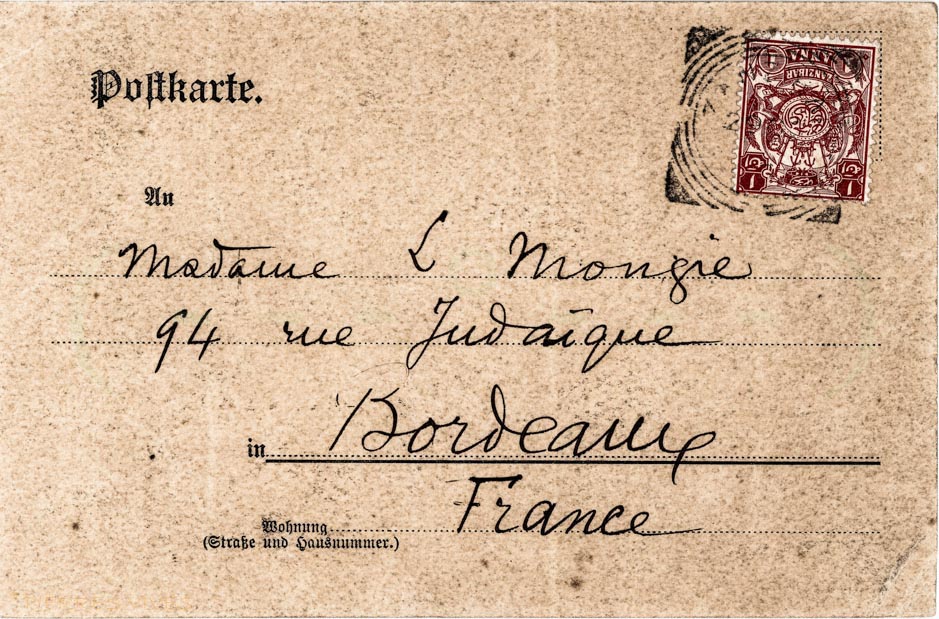 Postkarte.
ZANZIBAR
1 ANNA 1
1 1
An
Madame L Mongie
94 rue Judaïque
in Bordeaux
France
Wohnung
(Straße und Hausnummer.)